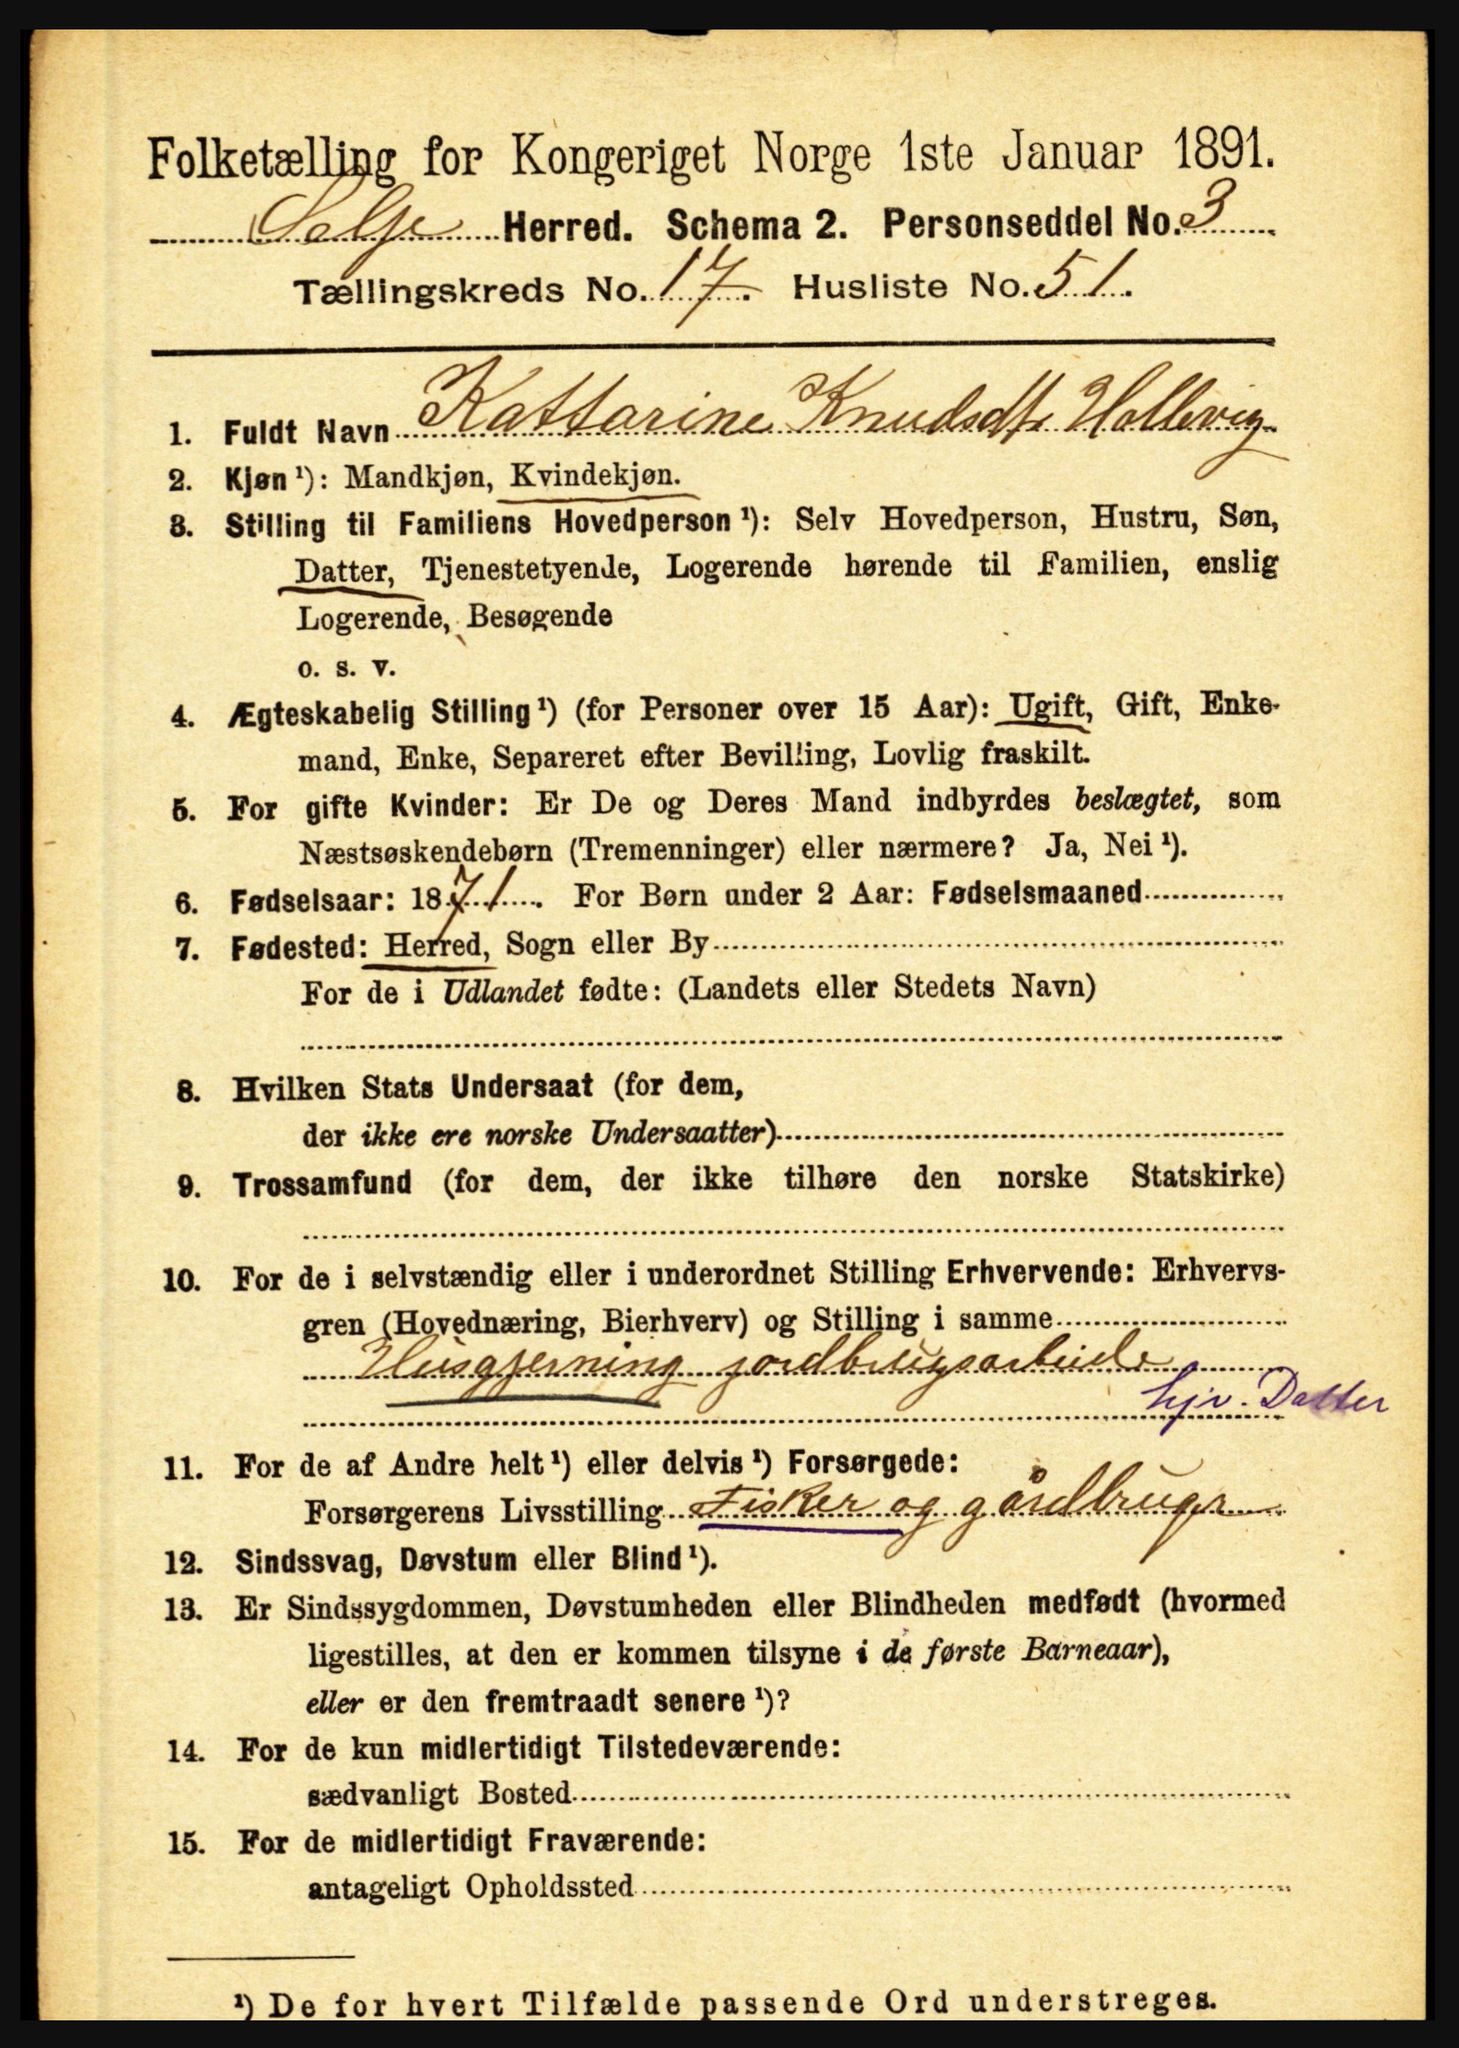 Folketælling for Kongeriget Norge 1ste Januar 1891.
Selje Herred. Schema 2. Personseddel No. 3
Tællingskreds No. 17. Husliste No. 51.
1. Fuldt Navn Kattarine Knudsdtr Hollevig
2. Kjøn ¹): Mandkjøn, Kvindekjøn.
3. Stilling til Familiens Hovedperson ¹): Selv Hovedperson, Hustru, Søn,
Datter, Tjenestetyende, Logerende hørende til Familien, enslig
Logerende, Besøgende
o. s. v.
4. Ægteskabelig Stilling ¹) (for Personer over 15 Aar): Ugift, Gift, Enke-
mand, Enke, Separeret efter Bevilling, Lovlig fraskilt.
5. For gifte Kvinder: Er De og Deres Mand indbyrdes beslægtet, som
Næstsøskendebørn (Tremenninger) eller nærmere? Ja, Nei ¹).
6. Fødselsaar: 1871. For Børn under 2 Aar: Fødselsmaaned
7. Fødested: Herred, Sogn eller By
For de i Udlandet fødte: (Landets eller Stedets Navn)
8. Hvilken Stats Undersaat (for dem,
der ikke ere norske Undersaatter)
9. Trossamfund (for dem, der ikke tilhøre den norske Statskirke)
10. For de i selvstændig eller i underordnet Stilling Erhvervende: Erhvervs-
gren (Hovednæring, Bierhverv) og Stilling i samme
Husgjerning jordbrugsarbeide
hjv. Datter
11. For de af Andre helt ¹) eller delvis ¹) Forsørgede:
Forsørgerens Livsstilling Fisker og gårdbruger
12. Sindssvag, Døvstum eller Blind ¹).
13. Er Sindssygdommen, Døvstumheden eller Blindheden medfødt (hvormed
ligestilles, at den er kommen tilsyne i de første Barneaar),
eller er den fremtraadt senere ¹)?
14. For de kun midlertidigt Tilstedeværende:
sædvanligt Bosted
15. For de midlertidigt Fraværende:
antageligt Opholdssted
¹) De for hvert Tilfælde passende Ord understreges.